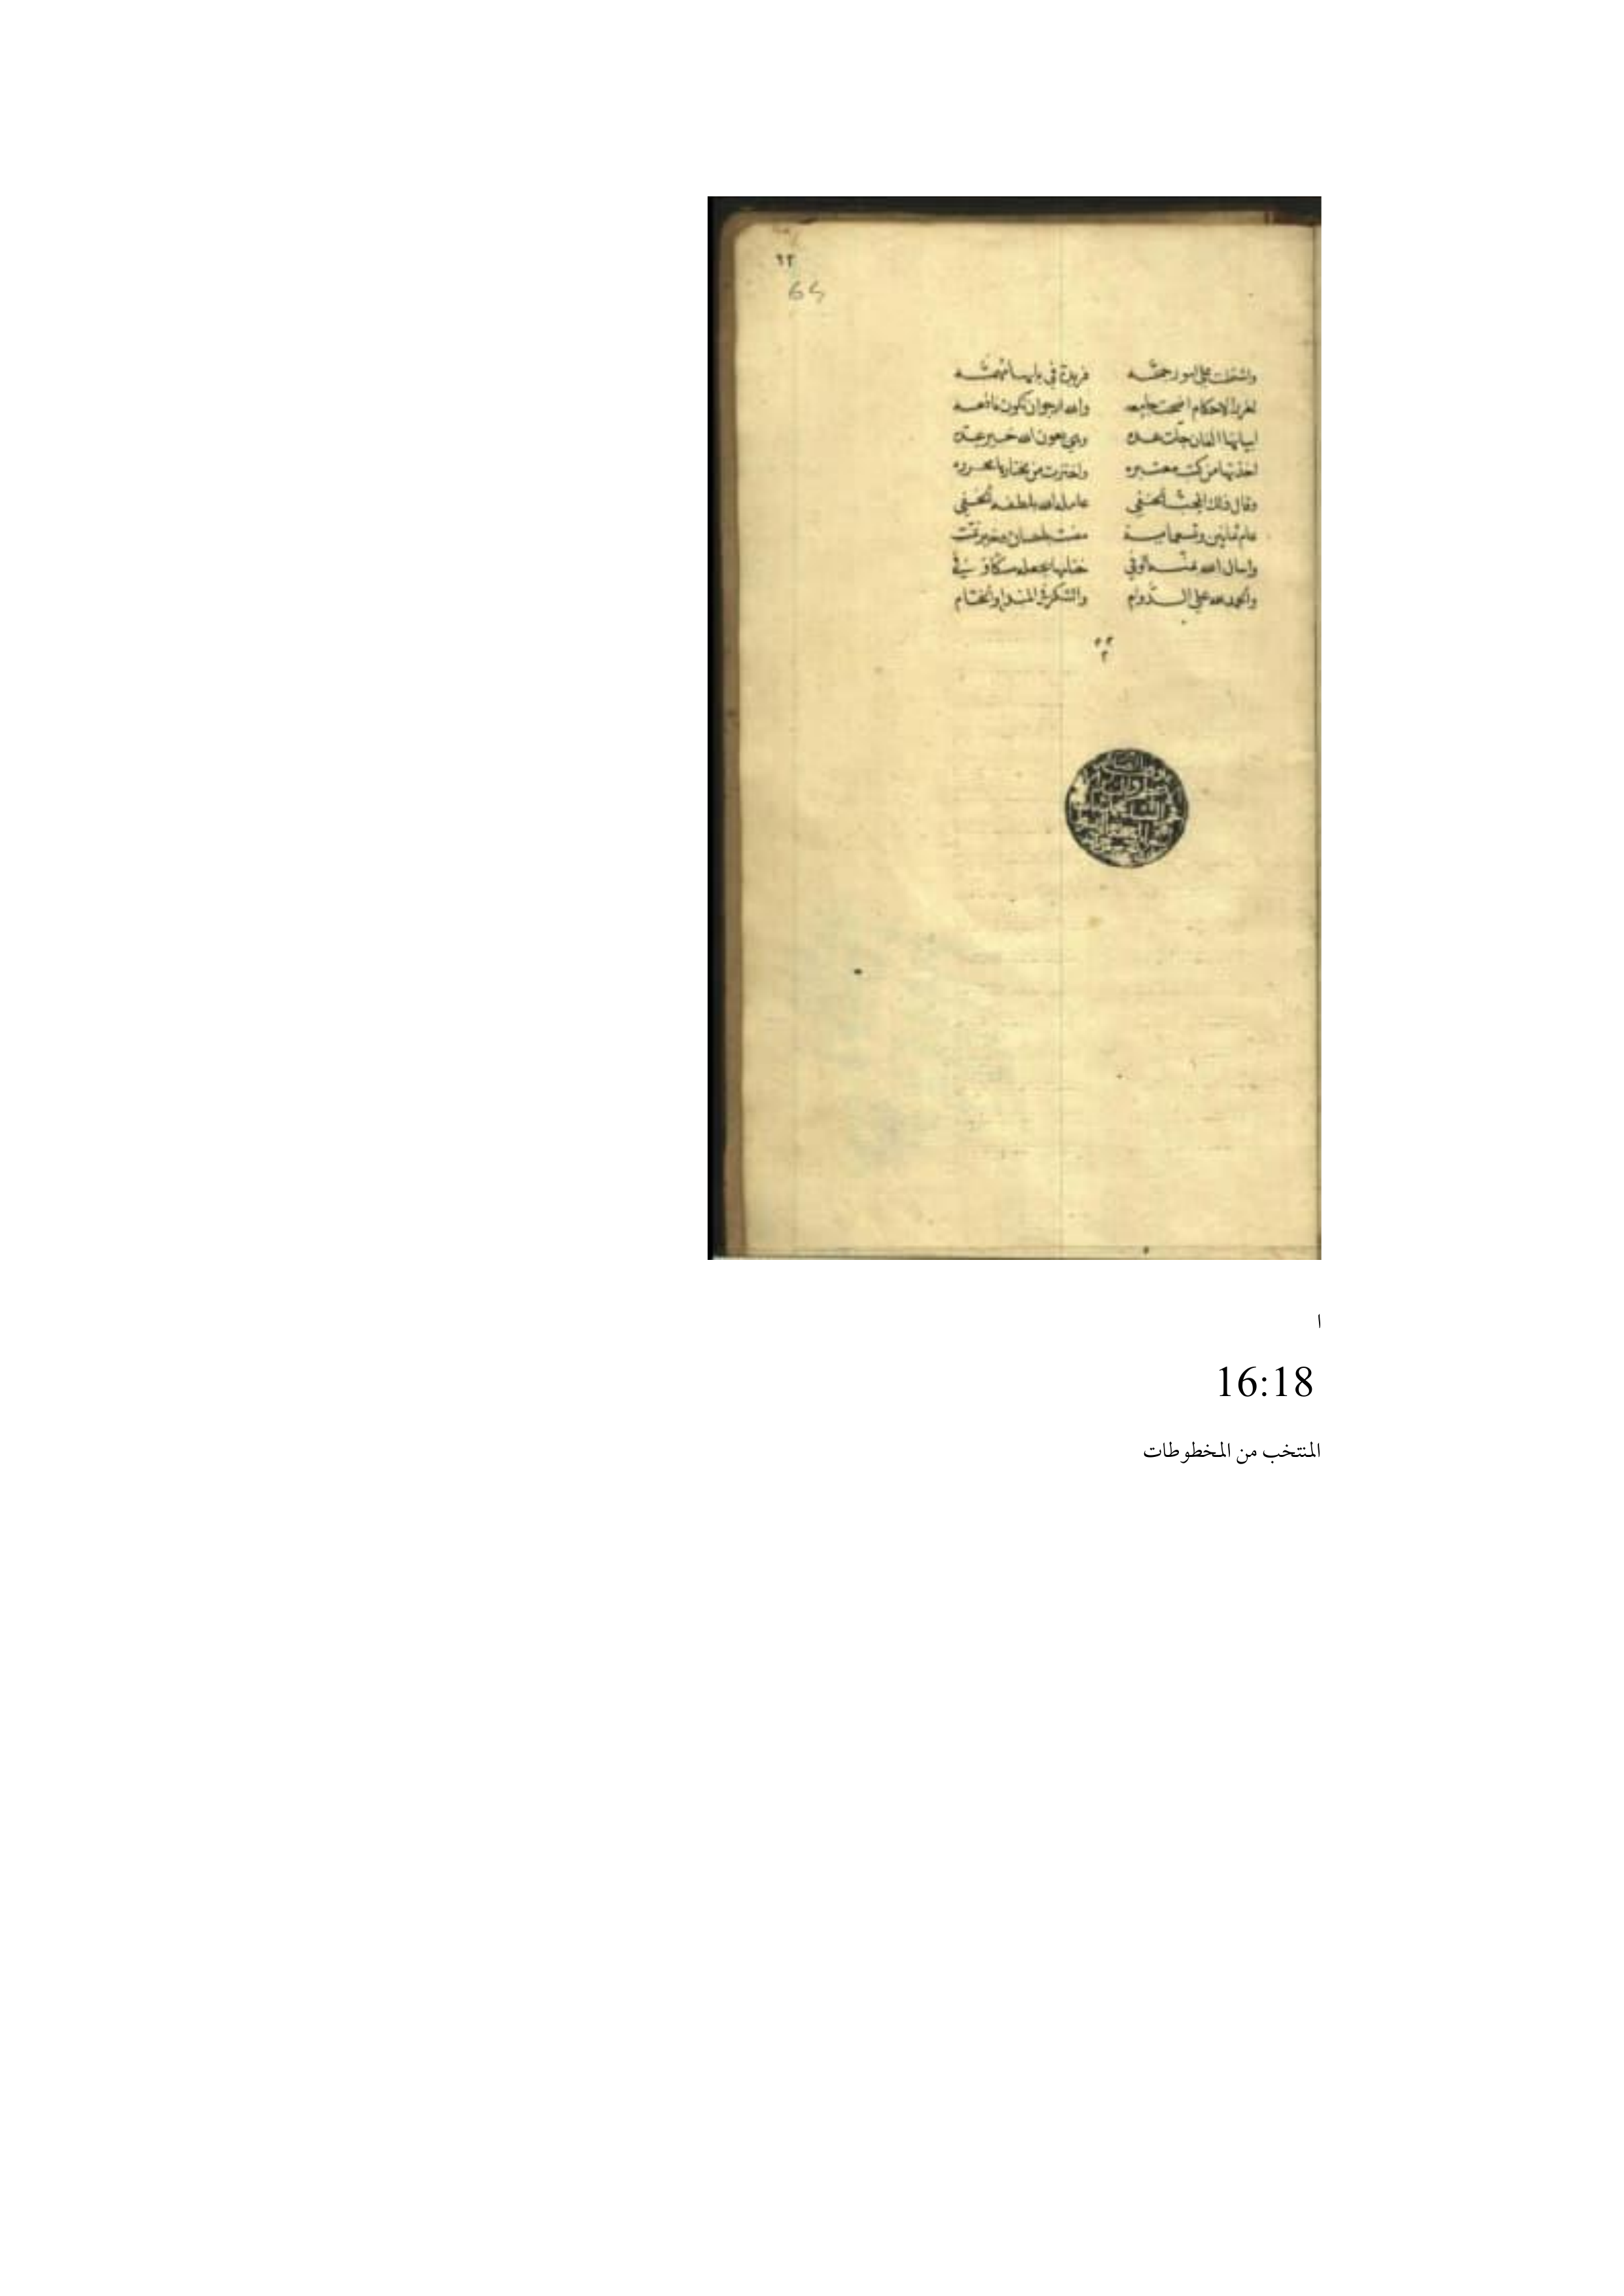 ٩٢
64
واشتملت على امور جمه فريدة في بابها مهمه
لغرر الاحكام اضحت جامعه والله ارجو ان تكون نافعه
ابياتها الفان جلت عده وهي بعون الله خير عده
اخذتها من كتب معتبره واخترت من مختارها محرره
وقال ذلك المحب الحنفي عامله الله بلطفه الخفي
عام ثمانين وتسعماية مضت
واسال الله بمنه الوفي
والحمد لله على الدوام والشكر في المبدا والختام
ا
16:18
المنتخب من المخطوطات